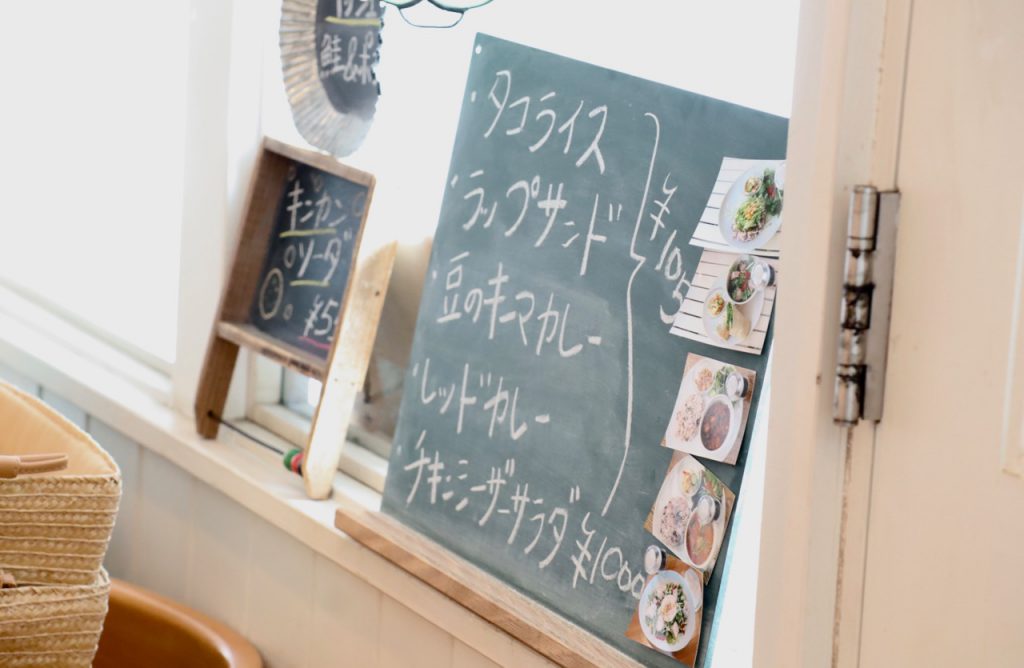 鮭&ポ
キンカン
ソーダ
¥5
・タコライス
・ラップサンド
¥105
・豆のキーマカレー
・レッドカレー
・チキンシーザーサラダ ¥1000